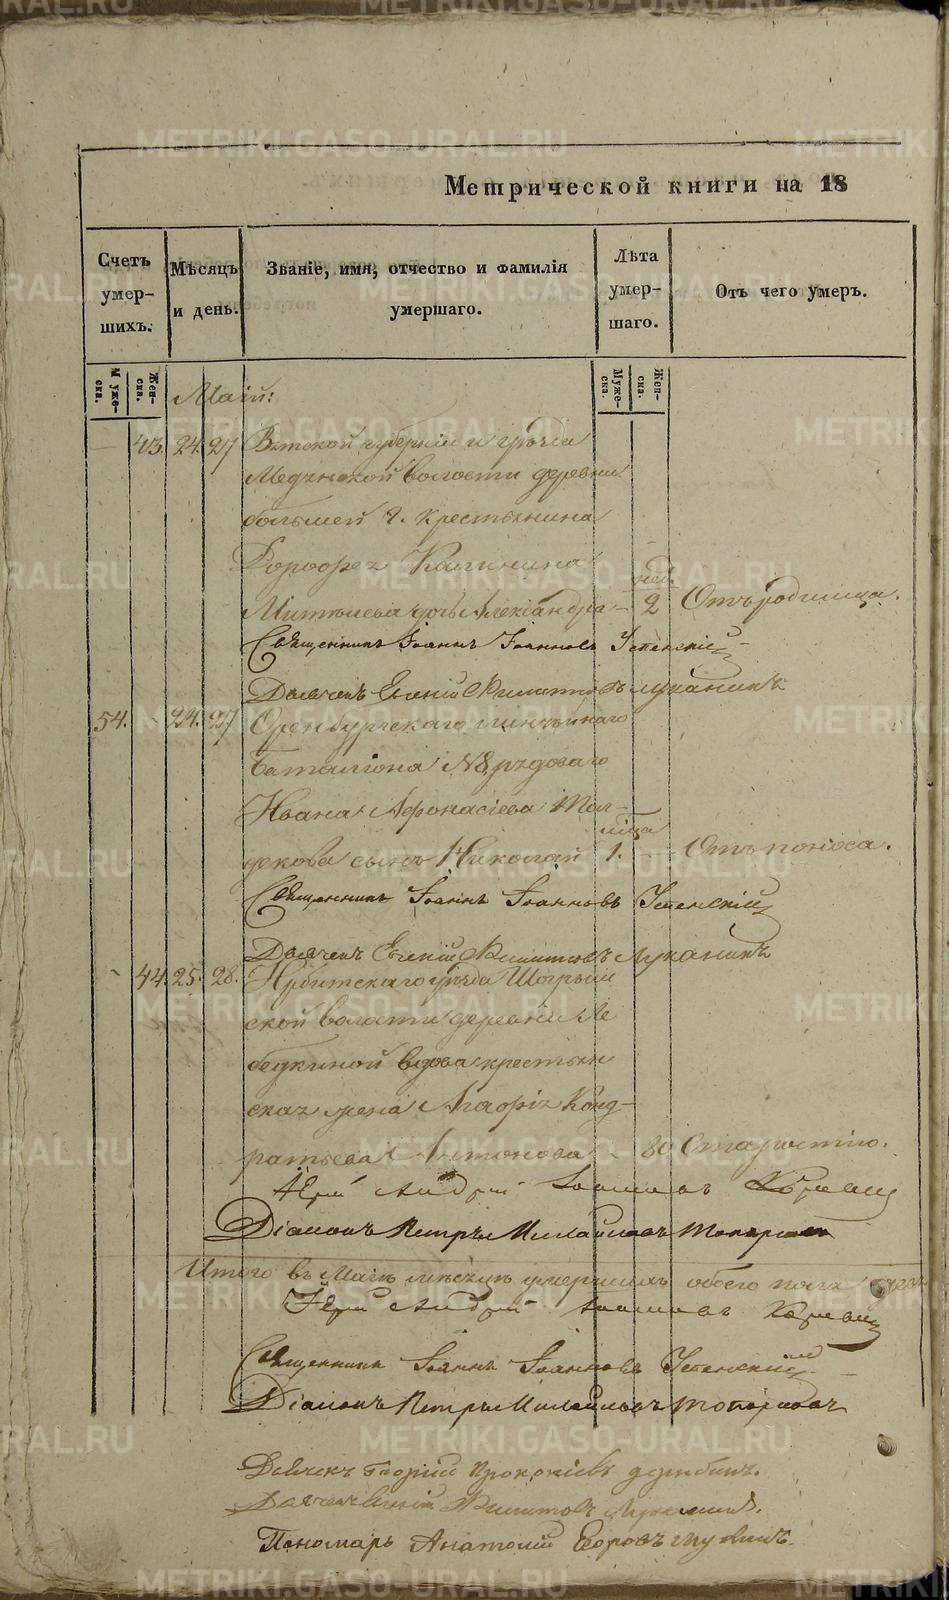 Метрической книги на 18
Счетъ умер-шихъ.
Мѣсяцъ и день.
Званіе, имя, отчество и фамилія умершаго.
Лѣта умер-шаго.
Отъ чего умеръ.
Муже-ска.
Жен-ска.
Муже-ска.
Жен-ска.
Маій:
43. 24. 27 Вятской губерніи и
волости деревни
большей крестьянина
Дорофея Калинина
нед.
дочь Александра 2 Отъ родимца.
Священникъ Іоаннъ Іоанновъ Успенскій
Дьячекъ Евгеній Филитовъ Луканинъ
54. 24. 27 Оренбургскаго линѣйнаго
баталіона №8 рядоваго
Ивана Афонасіева
мѣсца
сынъ Николай 1. Отъ поноса.
Священникъ Іоаннъ Іоанновъ Успенскій
Дьячекъ Евгеній Филитовъ Луканинъ
44. 25. 28. Ирбитскаго уѣзда Шогрыш
ской волости деревни Ле
бедкиной вдова крестьян
ская жена Агафія Конд-
ратьева Антонова 80 Старостію.
Іерей Андрей Іоанновъ
Діаконъ Петръ Михайловъ Топорковъ
Итого въ Маіѣ мѣсяцѣ умершихъ обоего пола
Іерей Андрей Іоанновъ
Священникъ Іоаннъ Іоанновъ Успенскій
Діаконъ Петръ Михайловъ Топорковъ
Дьячекъ Георгій Прокопіевъ
Дьячекъ Евгеній Филитовъ Луканинъ.
Пономарь Анатолій Егоровъ
METRIKI.GASO-URAL.RU